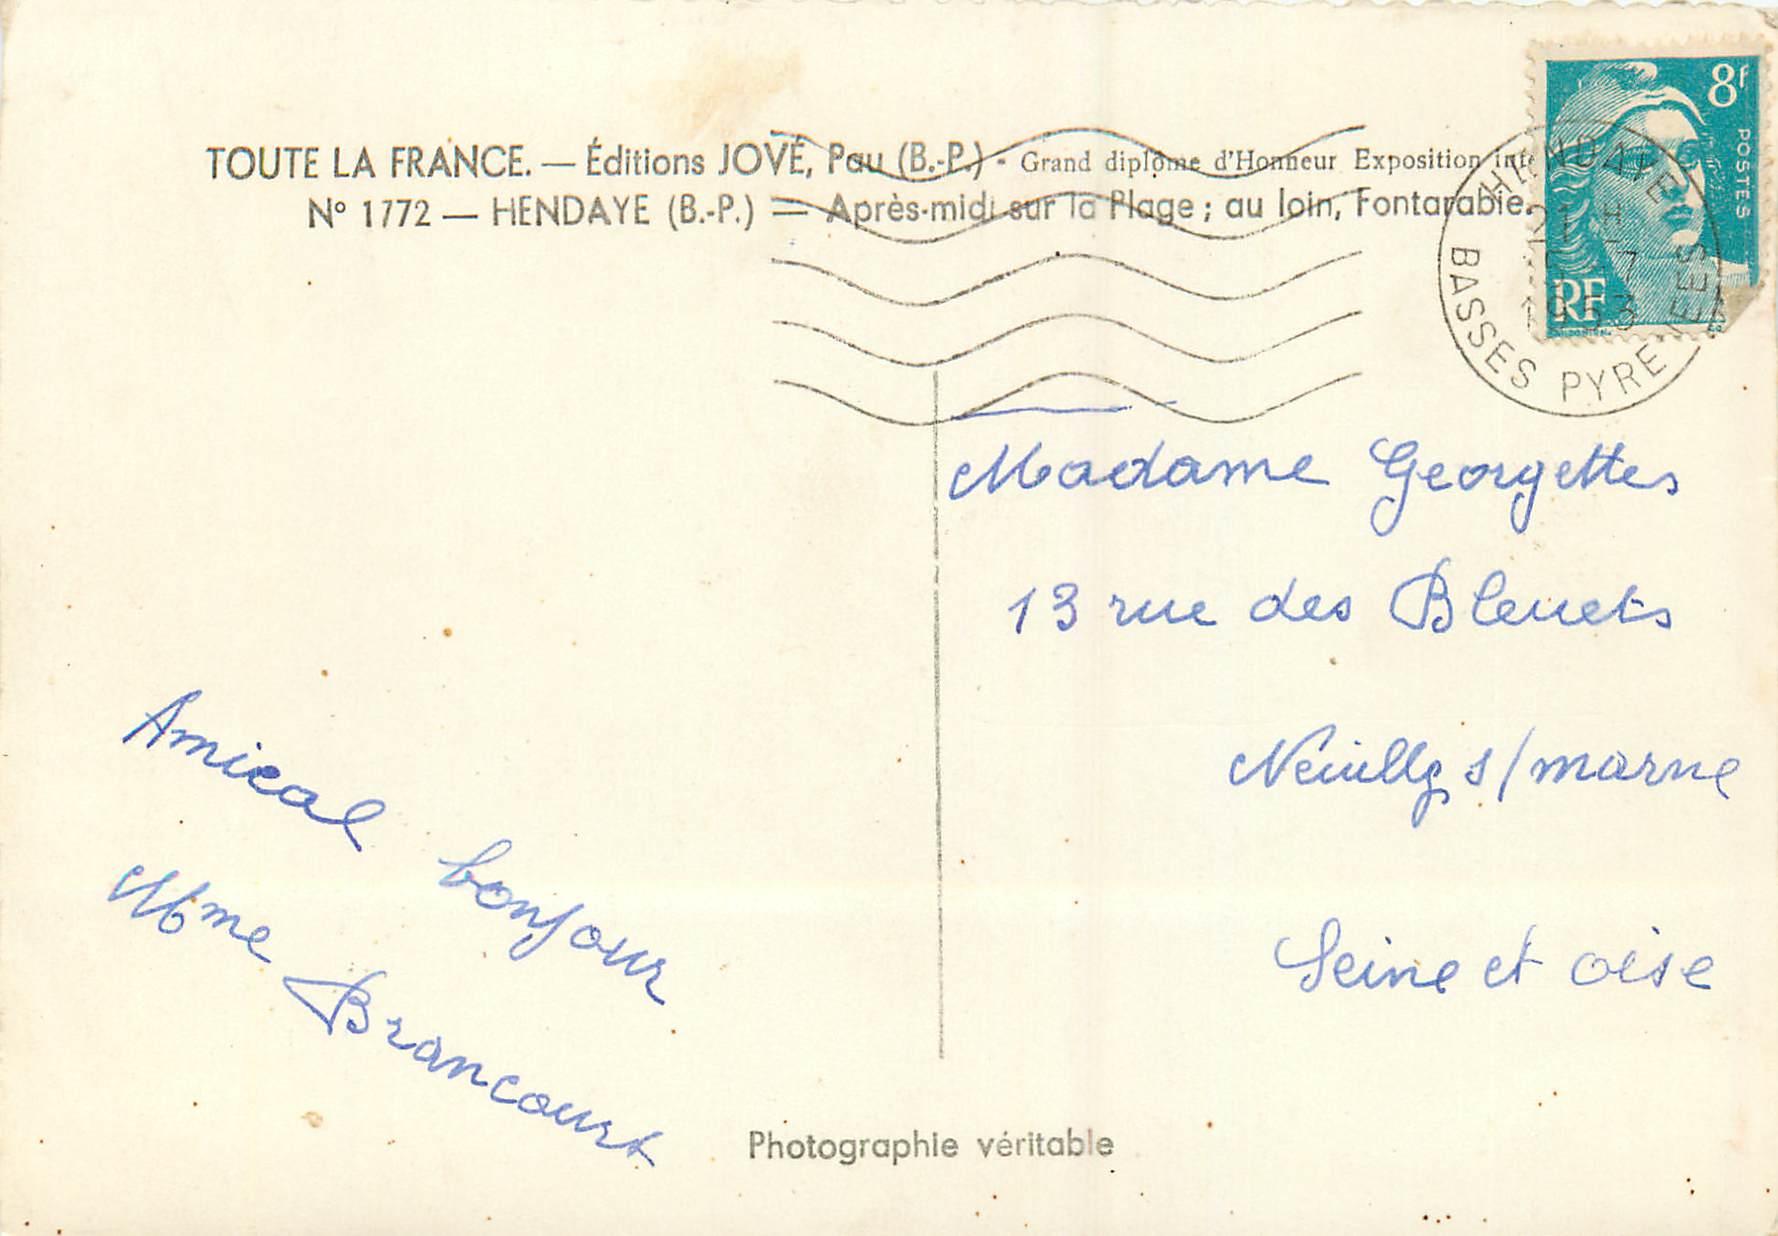 TOUTE LA FRANCE. — Éditions JOVÉ, Pau (B.-P.) - Grand diplôme d'Honneur Exposition
N° 1772 — HENDAYE (B.-P.) — Après-midi sur la Plage ; au loin, Fontarabie.
8f
POSTES
RF
HENDAYE
7
1953
BASSES PYRENEES
Madame Georgettes
13 rue des Bleuets
Neuilly s/marne
Seine et oise
Amical bonjour
Mme Brancourt
Photographie véritable